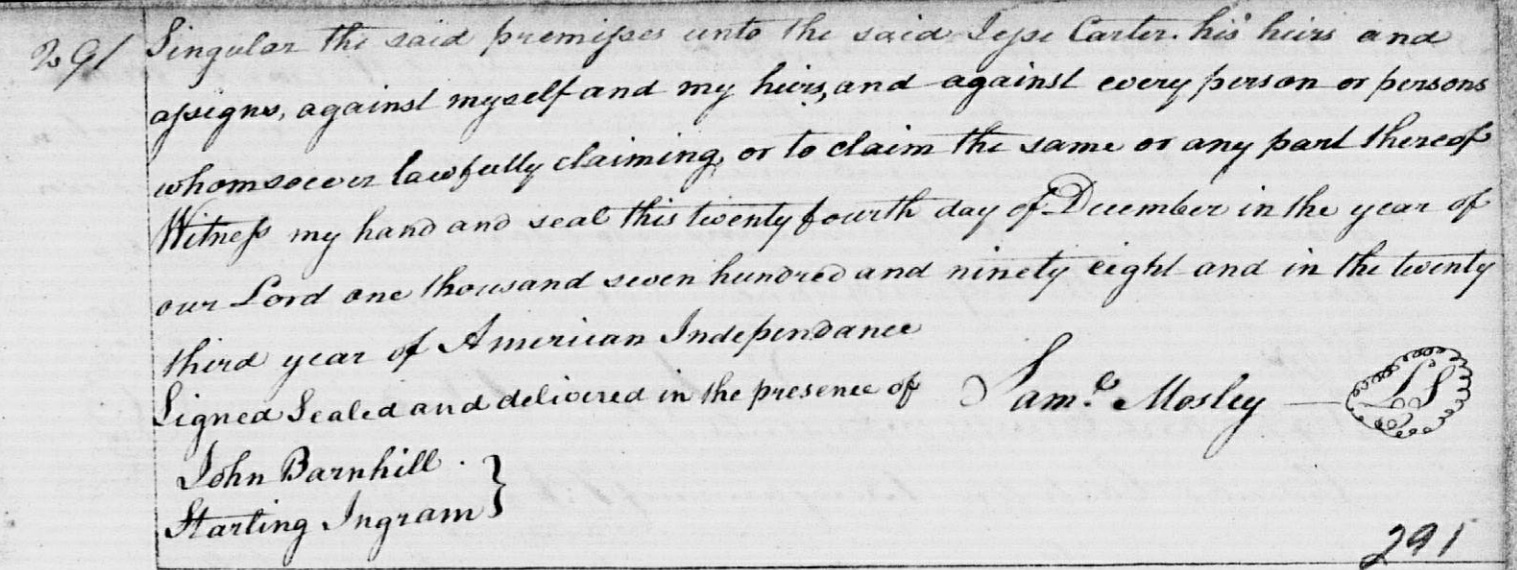 291 Singular the said premisses unto the said Jesse Carter. his heirs and
assigns, against myself and my heirs, and against every person or persons
whomsoever lawfully claiming, or to claim the same or any part thereof
Witness my hand and seal this twenty fourth day of December in the year of
our Lord one thousand seven hundred and ninety eight and in the twenty
third year of American Independance
Signed Sealed and delivered in the presence of Saml. Mosley — LS
John Barnhill .
Starling Ingram }
291